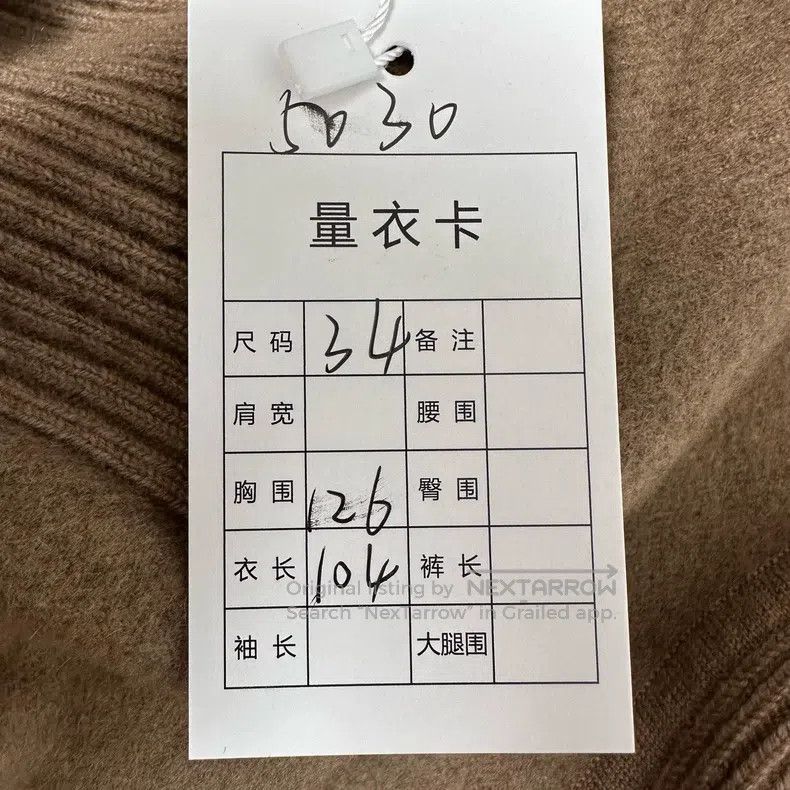 5030
量衣卡
尺码 34 备注
肩宽 腰围
胸围 126 臀围
衣长 104 裤长
Original listing by NEXTARROW
Search "NexTarrow" in Grailed app.
袖长 大腿围